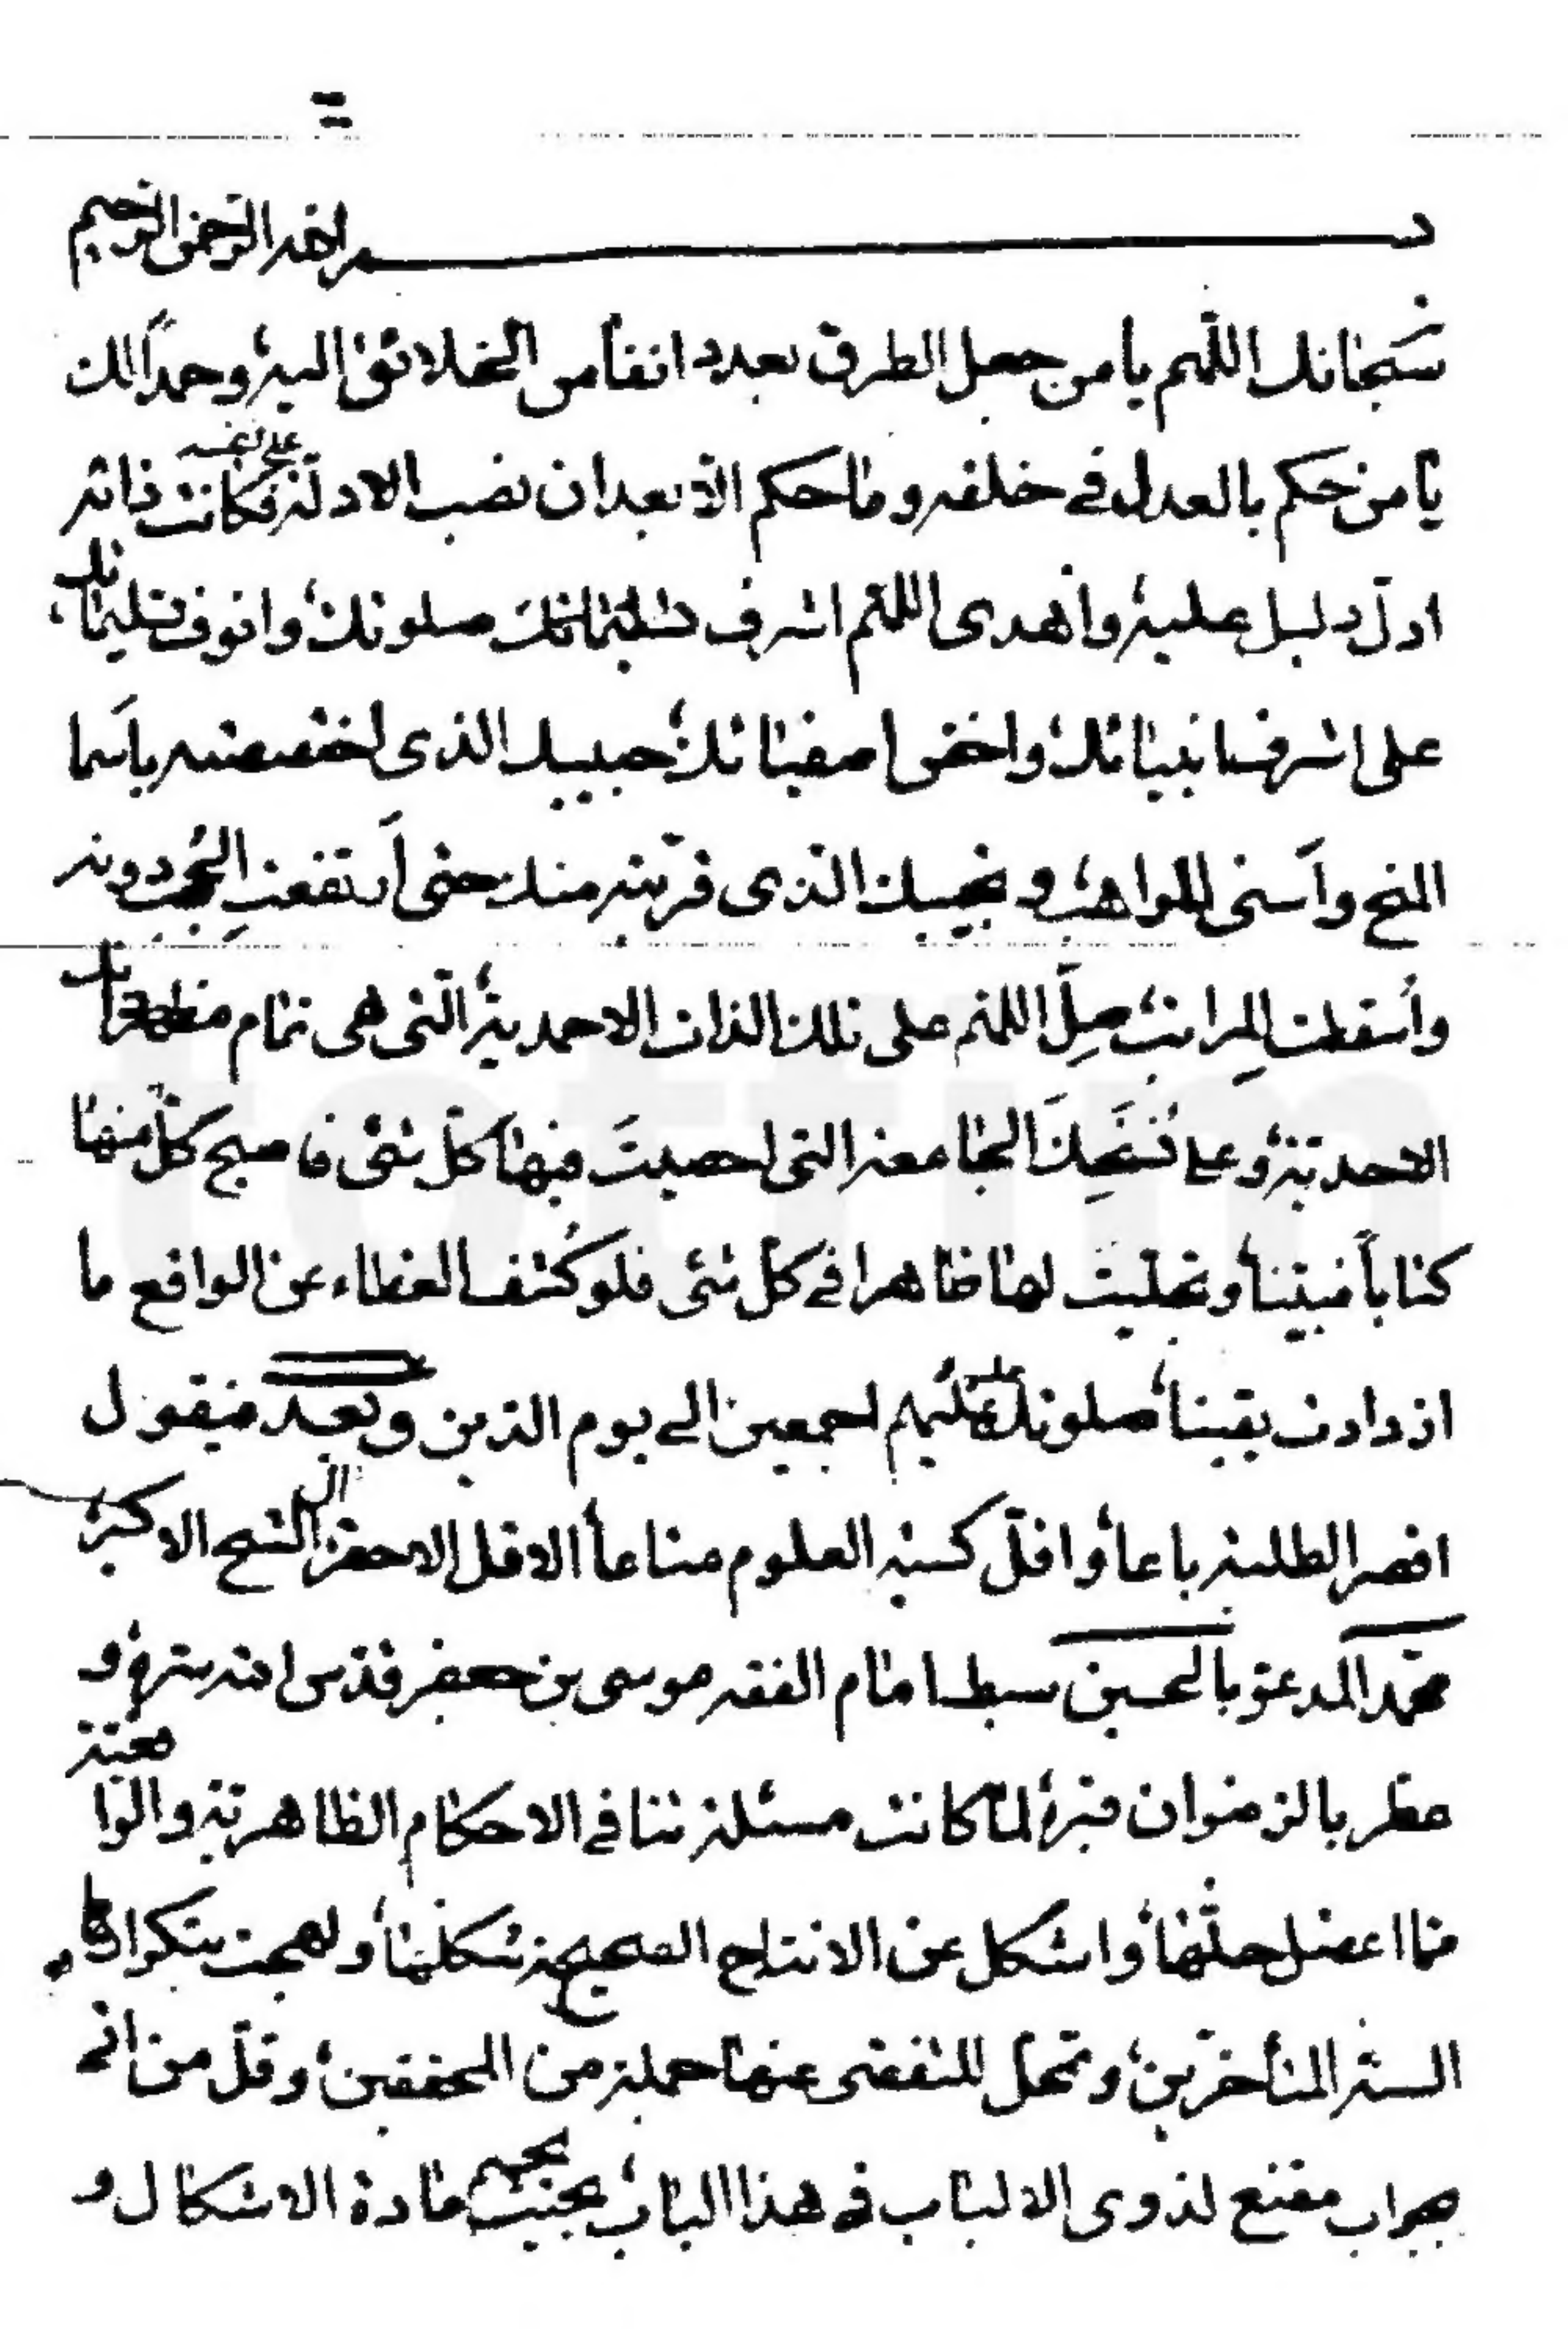 بسم الله الرحمن الرحيم
سبحانك اللّهم يا من جعل الطرق بعدد انفاس الخلائق اليه وحمداً لك
يا من حكم بالعدل في خلقه وما حكم الّا بعد ان نصب الادلة على نفسه فكانت ذاته
ادلّ دليل عليه وأهدى اللهّم اشرف صلوتك وانوف تسليماتك
على اشرف انبيائك واخص اصفيائك حبيبك الذى اختصصته باسما
المنح وأسنى المواهب ونجيبك الذى قرّبته منك حتى ارتفعتِ الحُجب دونه
وأسقطت المراتب صلِّ اللهم على تلك الذات الاحمدية التى هى تمام مظهراتك
الاحديّة وعلى نُسَخِكَ الجامعة التى احصيتَ فيها كلّ شئ فاصبح كلّ منها
كتاباً مبيناً وتجليتَ لها ظاهرا في كل شئ فلو كُشف الغطاء عن الواقع ما
ازدادت يقيناً صلوتك عليه وعليهم اجمعين الى يوم الدّين وبعد فيقول
اقصر الطلبة باعاً واقلّ كسبة العلوم متاعاً الاقل الاحقر آل الشيخ الاكبر
محمّد المدعوّ بالحسين سبط امام الفقه موسى بن جعفر قدّس الله سرّه و
عطّر بالرضوان قبره لمّا كانت مسئلة تنافي الاحكام الظاهريّة والواقعيّة
ممّا اعضل حلّها واشكل عن الانتاج الصحيح شكلها ولهجت بتكرارها
السنة المتأخّرين وتمحّل للتفصّى عنها جملة من المحققين وقلّ من اتى
بجواب مقنع لذوى الالباب في هذا الباب بحيث يحسم مادة الاشكال و